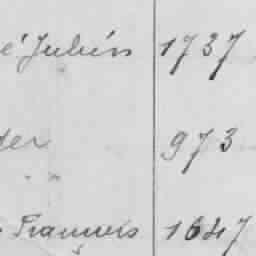 é Julién 1737
der 973
" "
François 1647